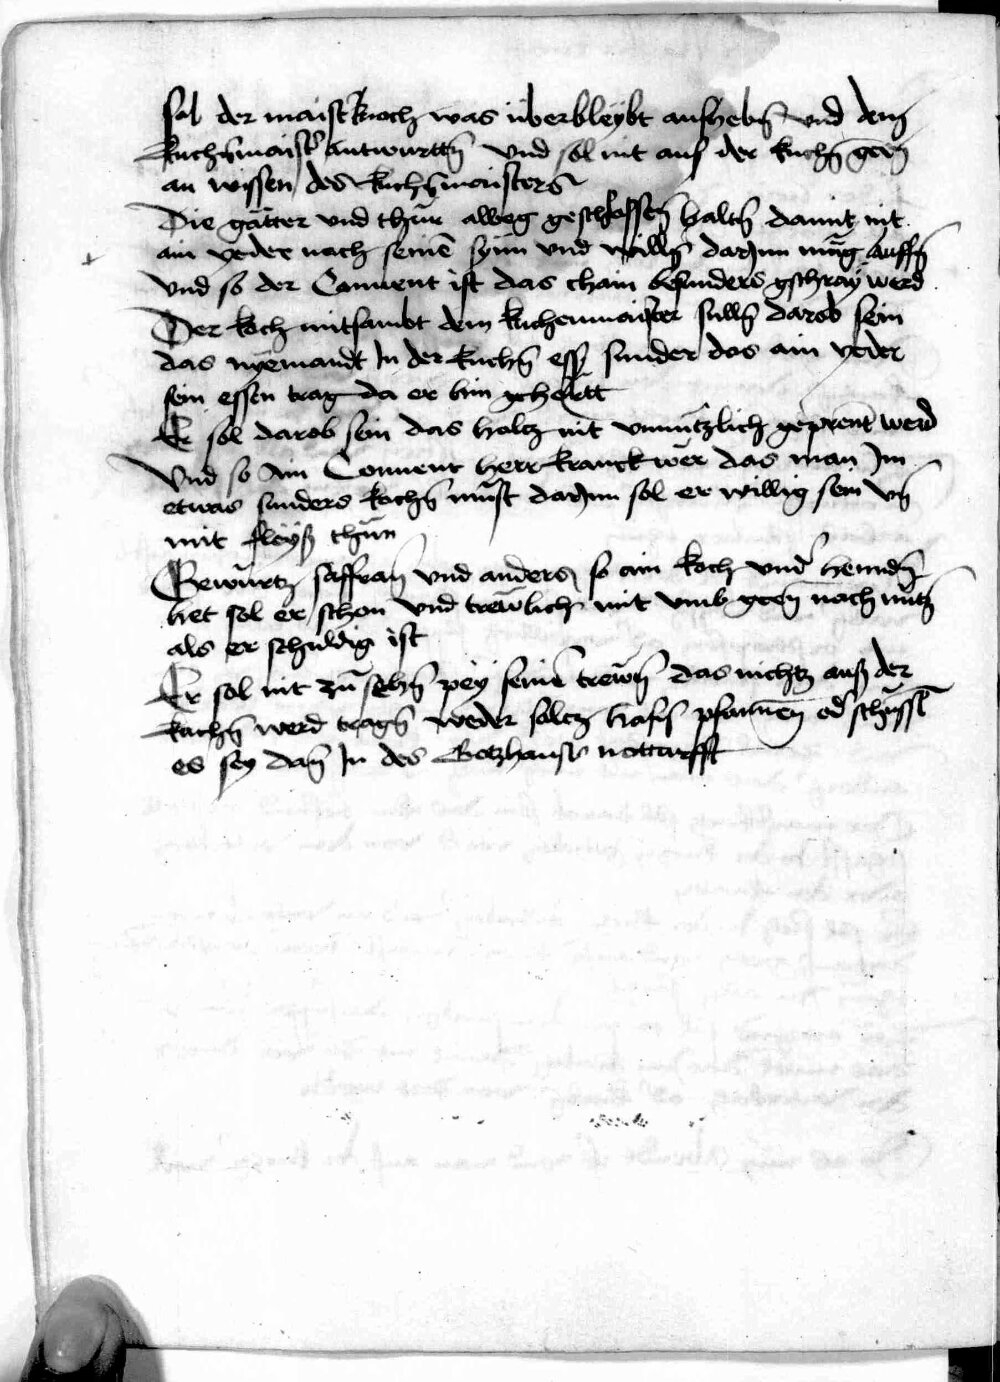 sol der maist[er] koch was überbleybt aufhebn̄ und dem
kuchn̄maist[er] antwurttn̄ und sol nit aus der kuchn̄ geen̄
an wissen des kuchn̄maisters
Die gätter und thür alweg geschlossen̄ haltn̄ damit nit
ain yeder nach seinē synn und willn̄ darJnn müg lauffn̄
und so der Convent ist das chain besunders gschray werd
Der koch mitsambt dem kuchenmaister sulln̄ darob sein
das nyemandt Jn der kuchn̄ ess sunder das ain yeder
sein essen trag da er hin gehörtt
Er sol darob sein das holtz nit unnützlich geprent werd
Und so Ain Convent herr kranck wer das man Jm
etwas sunders kochn̄ müst darJnn sol er willig sein un̄
mit fleyß thün
Gewürtz saffran̄ und anders so ain koch und[er] henndn̄
het sol er schon und trewlich mit umb geen̄ nach nutz
als er schuldig ist
Er sol nit zu sehn̄ pey seinē trewn̄ das nichtz auß der
kuchn̄ werd tragn̄ weder saltz hafn̄ pfannen̄ od[er] schüssl
es sey dan̄ Jn des Gotzhauss notturfft